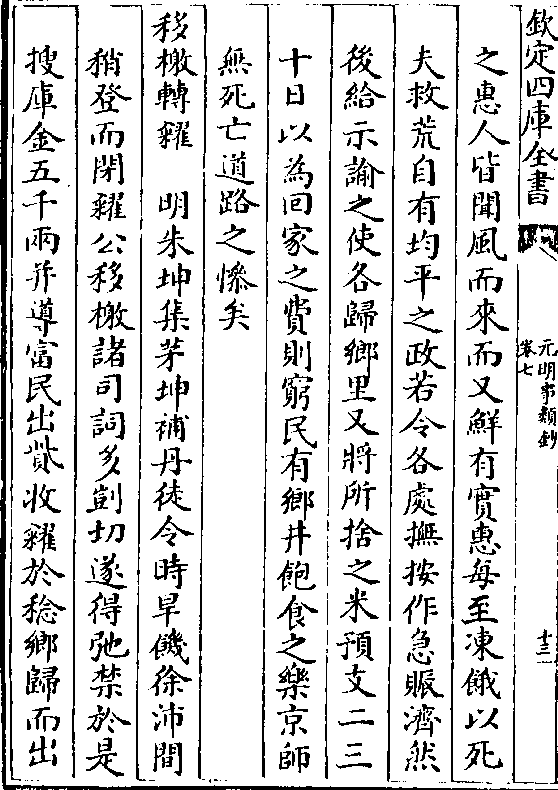 欽定四庫全書
元明事類鈔
卷七
十三
之惠人皆聞風而來而又鮮有實惠每至凍餓以死
夫救荒自有均平之政若令各處撫按作急賑濟然
後給示諭之使各歸鄉里又將所捨之米預支二三
十日以為回家之費則窮民有鄉井飽食之樂京師
無死亡道路之慘矣
移檄轉糴　明朱坤集茅坤補丹徒令時旱饑徐沛間
稍登而閉糴公移檄諸司詞多剴切遂得弛禁於是
搜庫金五千兩并導富民出貲收糴於稔鄉歸而出